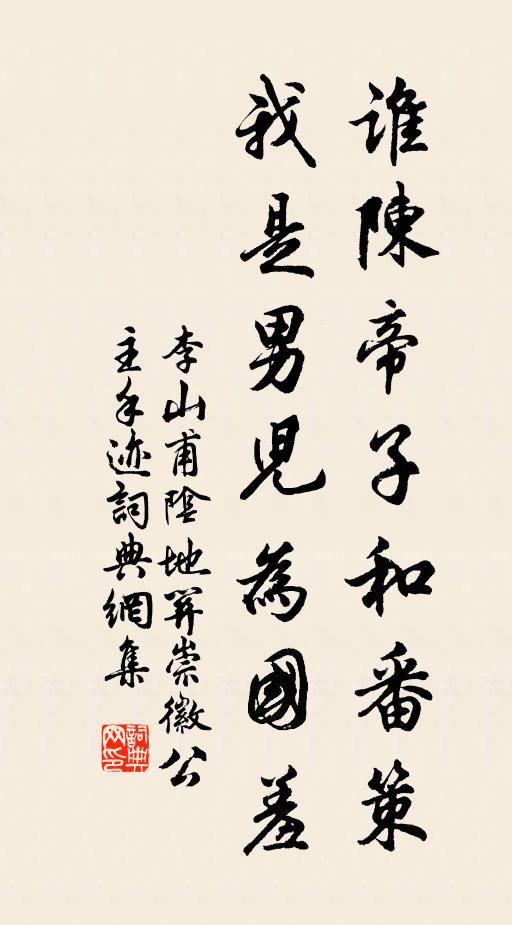 誰陳帝子和番策
我是男兒為國羞
李山甫陰地關崇徽公
主手迹詞典網集
詞典
网印